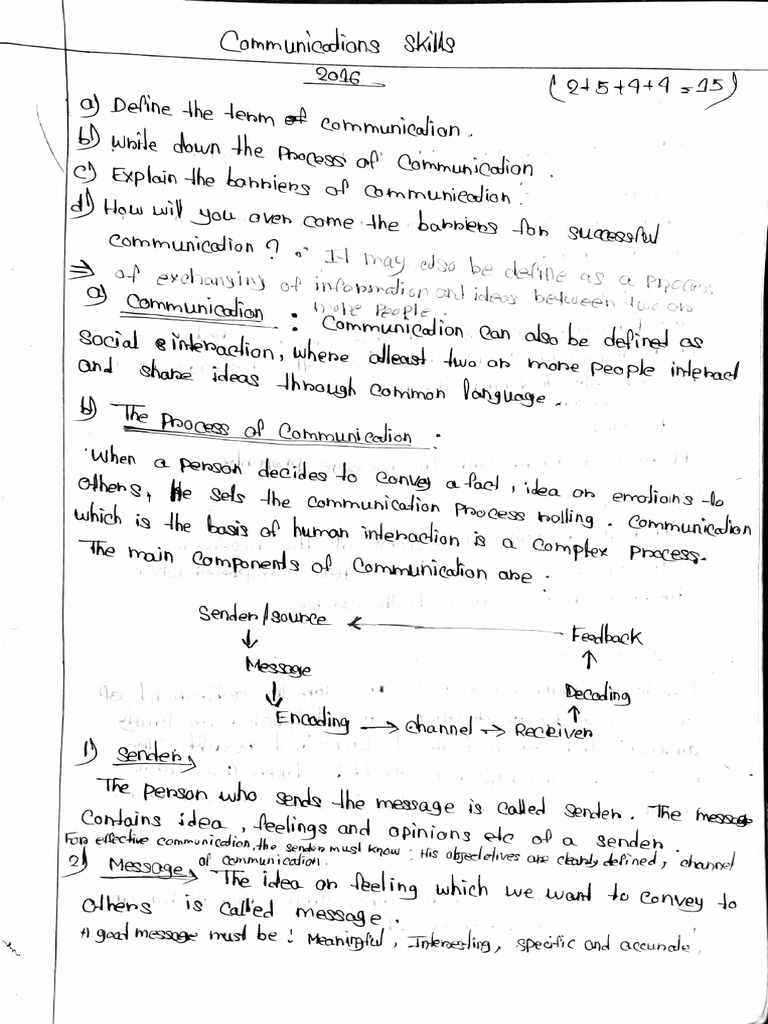 Communications skills
2016
(2+5+4+4=15)
a) Define the term of communication.
b) Write down the process of communication.
c) Explain the barriers of communication.
d) How will you over come the barriers for successful
communication? . It may also be define as a process
of exchanging of information and ideas between two or
more people.
⇒
a) Communication : Communication can also be defined as
social interaction, where atleast two or more people interact
and share ideas through common language.
b) The process of communication :
When a person decides to convey a fact, idea or emotions to
others, He sets the communication process rolling. Communication
which is the basis of human interaction is a complex process.
The main components of communication are :
Sender/source ← Feedback
↓ ↑
Message Decoding
↓ ↑
Encoding → channel → Receiver
1) Sender→
The person who sends the message is called sender. The message
contains idea, feelings and opinions etc of a sender.
For effective communication, the sender must know : His objectetives are clearly defined, channel
of communication.
2) Message→ The idea or feeling which we want to convey to
others is called message.
A good message must be : Meaningful, Interesting, specific and accurate.